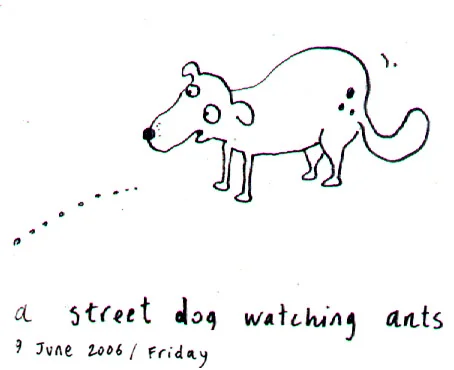 a street dog watching ants
9 June 2006 / Friday